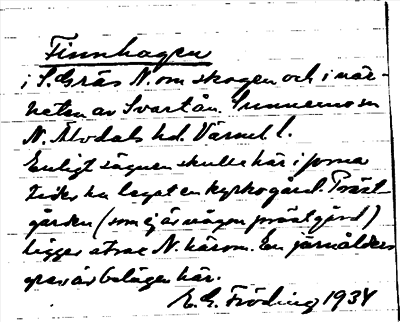 Finnhagen
i S. Gräs N. om skogen och i när-
heten av Svartån. Gunnemo sn
N. Älvdals hd. Värml. l.
Enligt sägnen skulle här i forna
tider ha legat en kyrkogård. Präst-
gården (som ej är någon prästgård)
ligger strax N. härom. En järnålders
grav är belägen här.
E. G. Fröding 1934